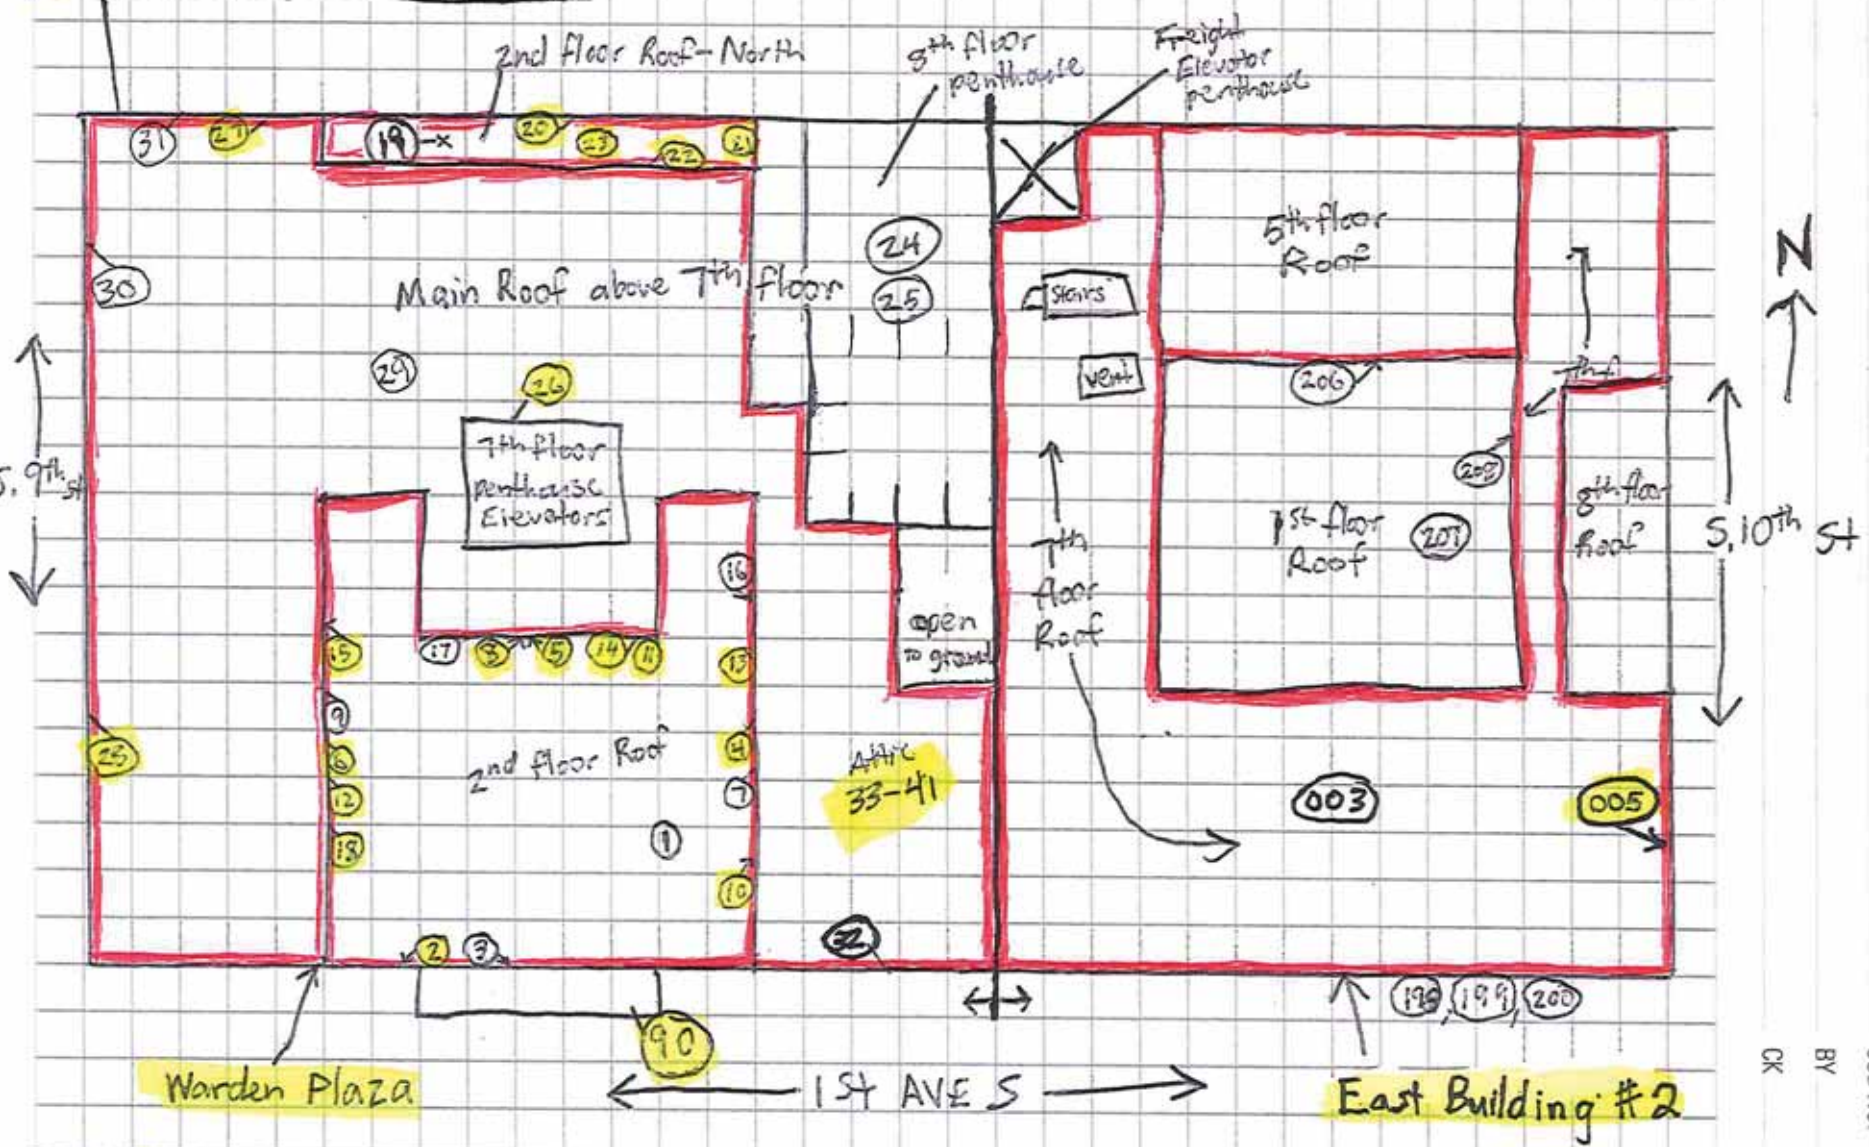 2nd floor Roof-North
8th floor
penthouse
Freight
Elevator
penthouse
31
27
19 -x
20
23
22
21
24
25
30
Main Roof above 7th floor
29
26
7th floor
penthouse
Elevators
S. 9th st
5th floor
Roof
stairs
vent
206
208
207
1st floor
Roof
8th floor
Roof
N
S. 10th St
7th
floor
Roof
open
to ground
16
15
17
8
5
14
11
13
9
6
12
18
4
7
1
10
2nd floor Roof
Attic
33-41
003
005
2
3
32
90
198, 199, 200
Warden Plaza
1st AVE S
East Building #2
BY
CK